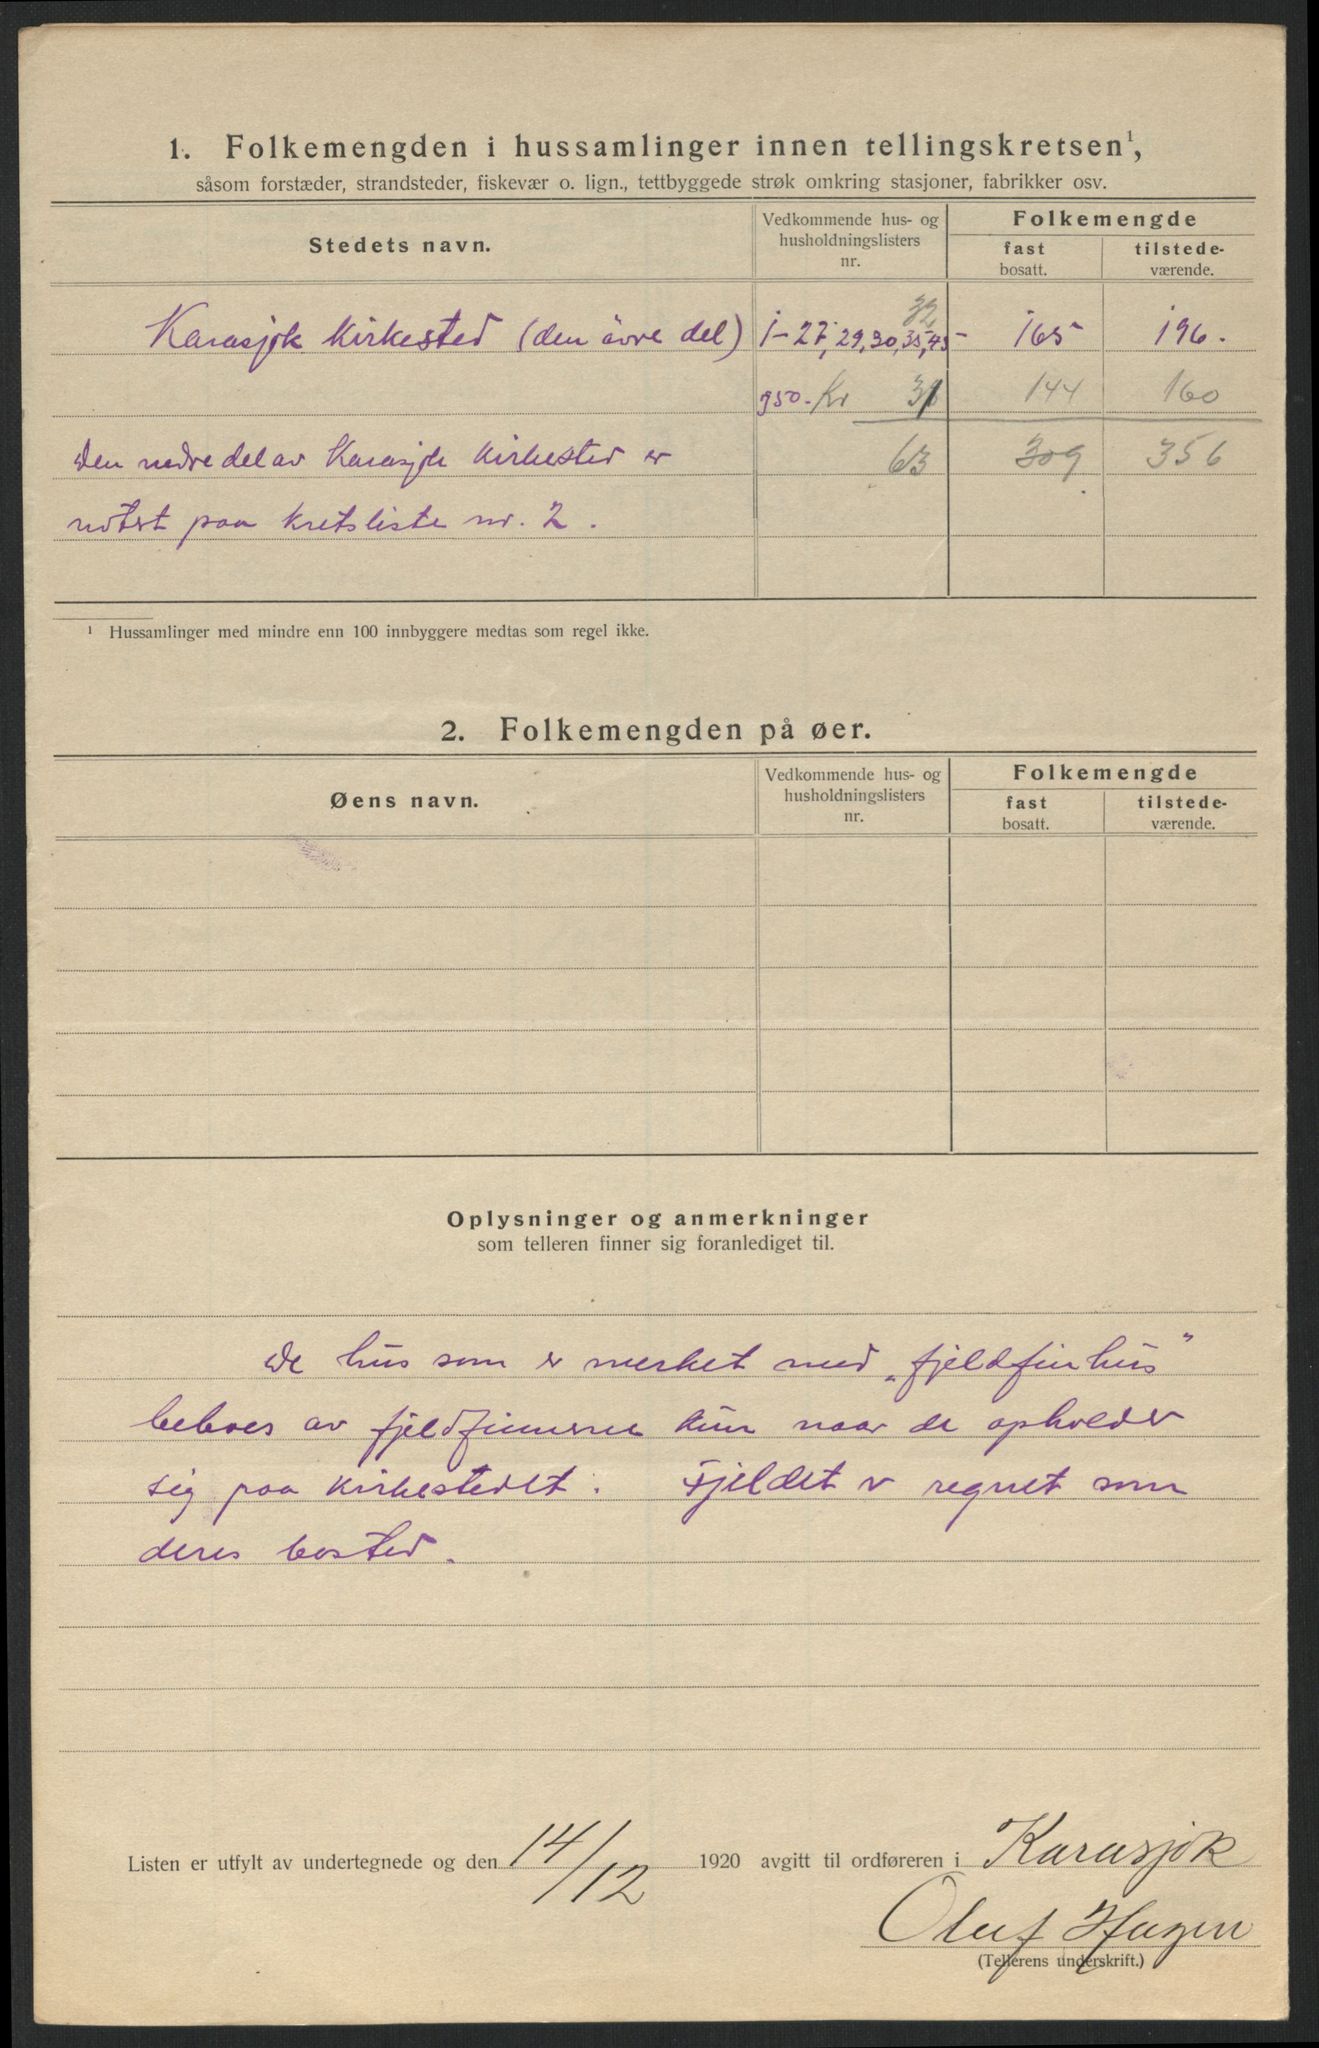 1. Folkemengden i hussamlinger innen tellingskretsen¹,
såsom forstæder, strandsteder, fiskevær o. lign., tettbyggede strøk omkring stasjoner, fabrikker osv.
Stedets navn.
Vedkommende hus- og
husholdningslisters
nr.
Folkemengde
fast
bosatt.
tilstede-
værende.
32
Karasjok Kirkested (den övre del) 1-27, 29, 30, 35, 45 165 196.
Kr 31 144 160
Den nedre del av Karasjok kirkested er 63 309 356
notert paa kretsliste nr. 2.
¹ Hussamlinger med mindre enn 100 innbyggere medtas som regel ikke.
2. Folkemengden på øer.
Øens navn.
Vedkommende hus- og
husholdningslisters
nr.
Folkemengde
fast
bosatt.
tilstede-
værende.
Oplysninger og anmerkninger
som telleren finner sig foranlediget til.
De hus som er merket med „fjeldfinhus"
beboes av fjeldfinnerne kun naar de opholder
sig paa kirkestedet. Fjeldet er regnet som
deres bosted.
Listen er utfylt av undertegnede og den 14/12 1920 avgitt til ordføreren i Karasjok
Oluf Hagen
(Tellerens underskrift.)